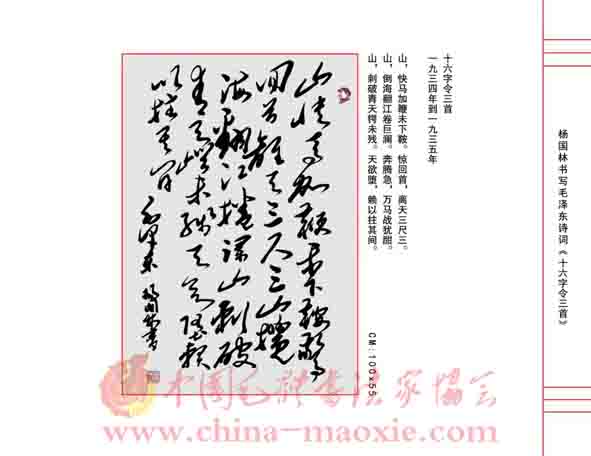 杨国林书写毛泽东诗词《十六字令三首》
十六字令三首
一九三四年到一九三五年
山，快马加鞭未下鞍。惊回首，离天三尺三。
山，倒海翻江卷巨澜。奔腾急，万马战犹酣。
山，刺破青天锷未残。天欲堕，赖以拄其间。
CM:100x55
山快马加鞭未下鞍惊
回首离天三尺三山
海翻江捲澜山刺破
青天锷未残天欲堕赖
以拄其间
毛泽东
杨国林书
中国毛体书法家协会
www.china-maoxie.com